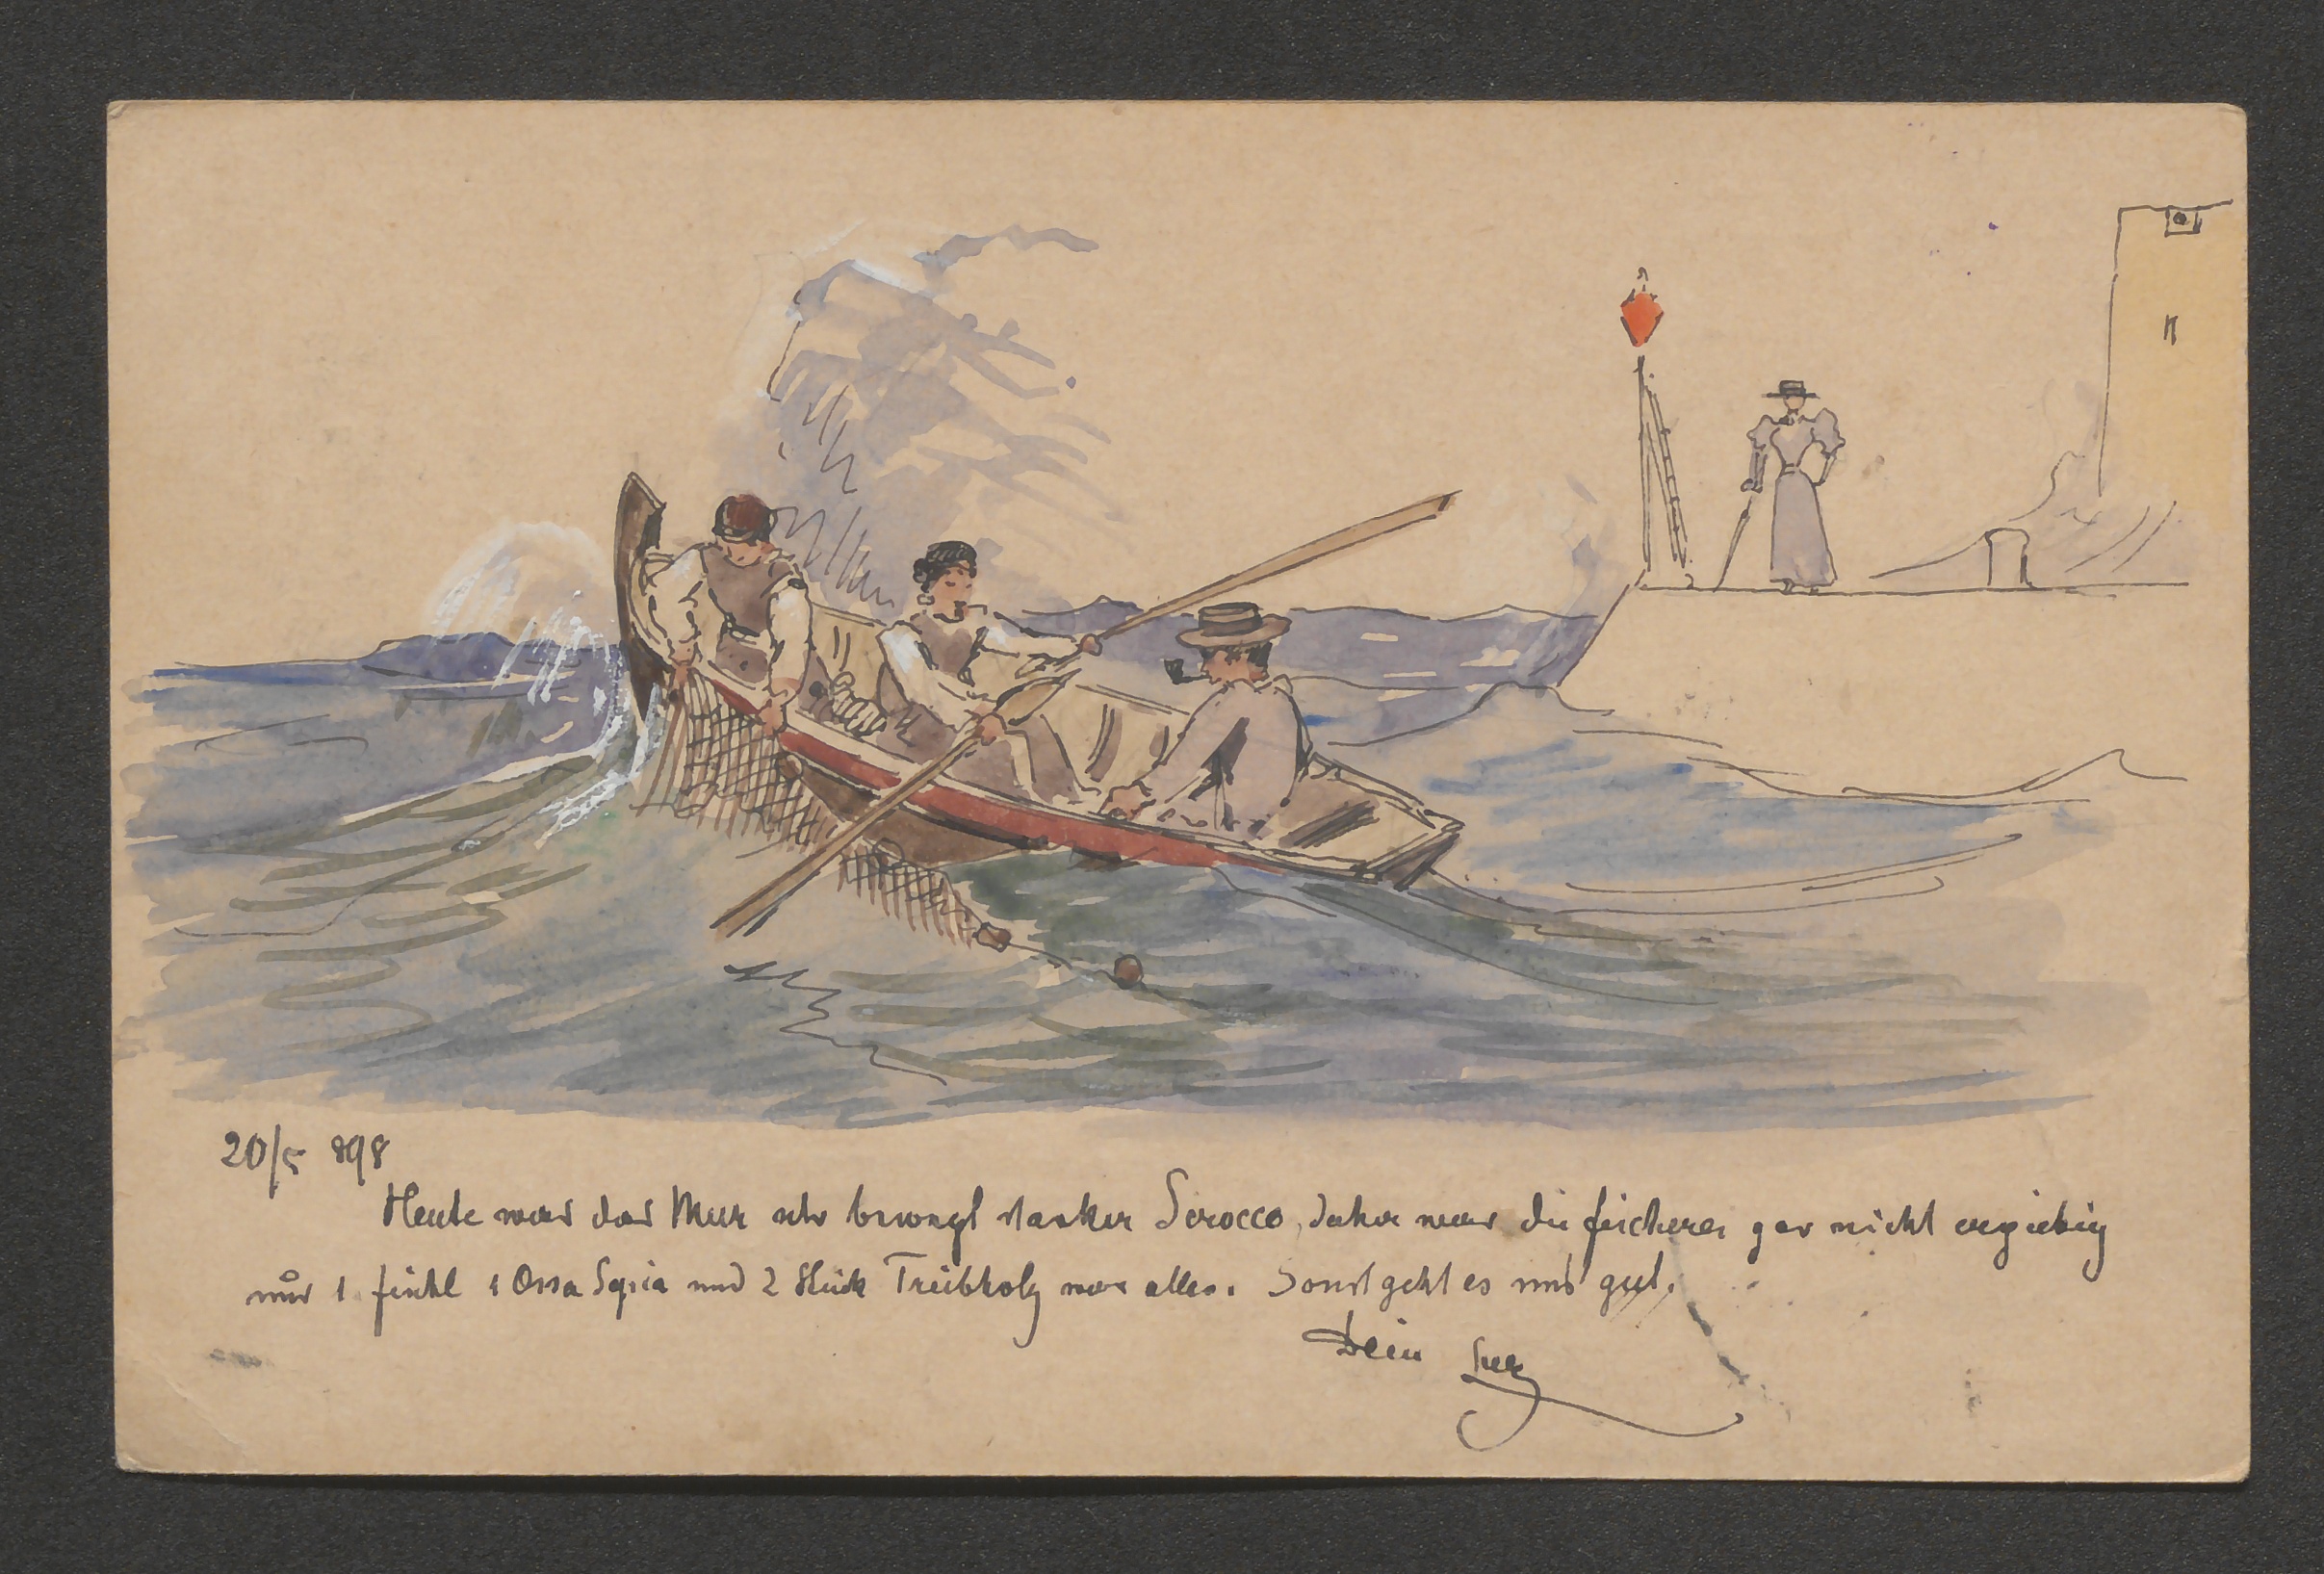 20/5 898
Heute war das Meer sehr bewegt starker Scirocco, daher war die fischerei gar nicht ergiebig
nur 1 fischl 1 Ossa Sepia und 2 Stück Treibholz war alles. Sonst geht es uns gut.
Dein